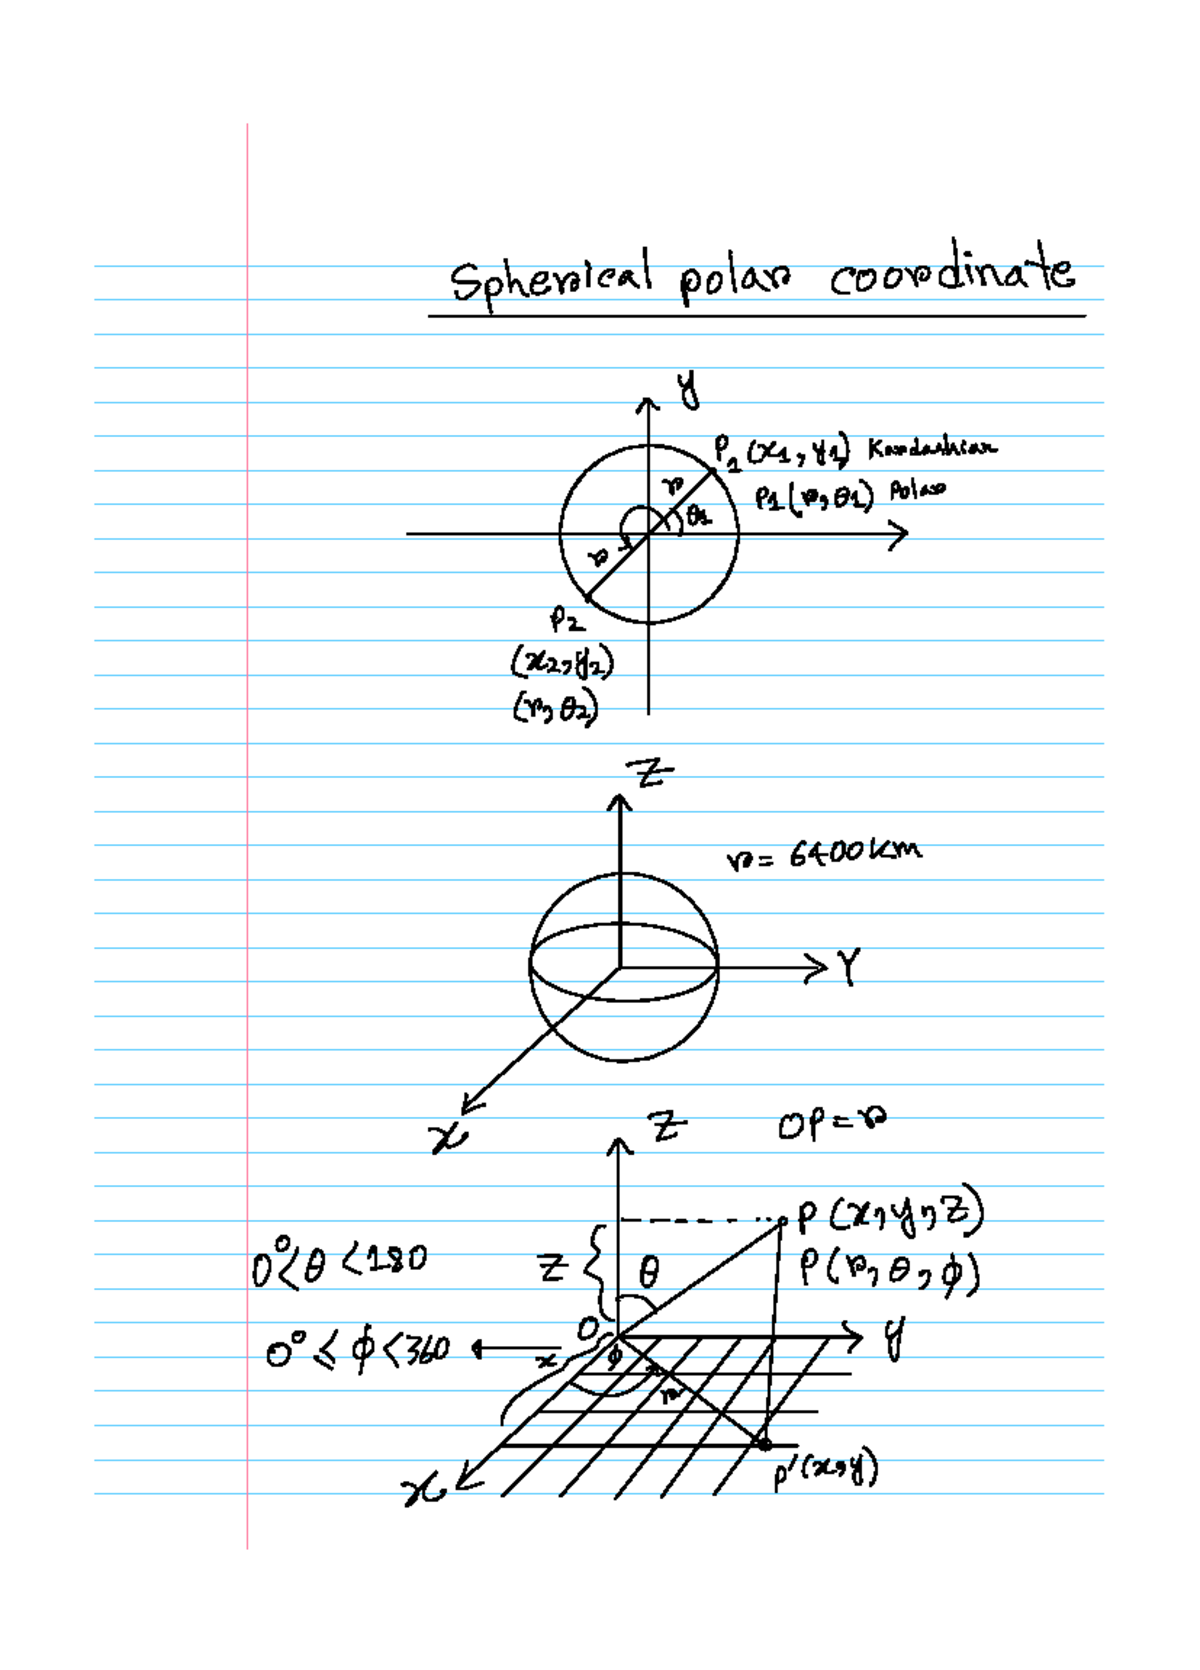 Spherical polar coordinate
y
P1 (x1, y1)
P1 (r, θ1) Polar
r
θ1
r
P2
(x2, y2)
(r, θ2)
Z
r = 6400 km
Y
x
Z
OP = r
P (x, y, z)
0° < θ < 180
Z
θ
P (r, θ, φ)
O
y
0° ≤ φ < 360
x
φ
r
x
P' (x, y)